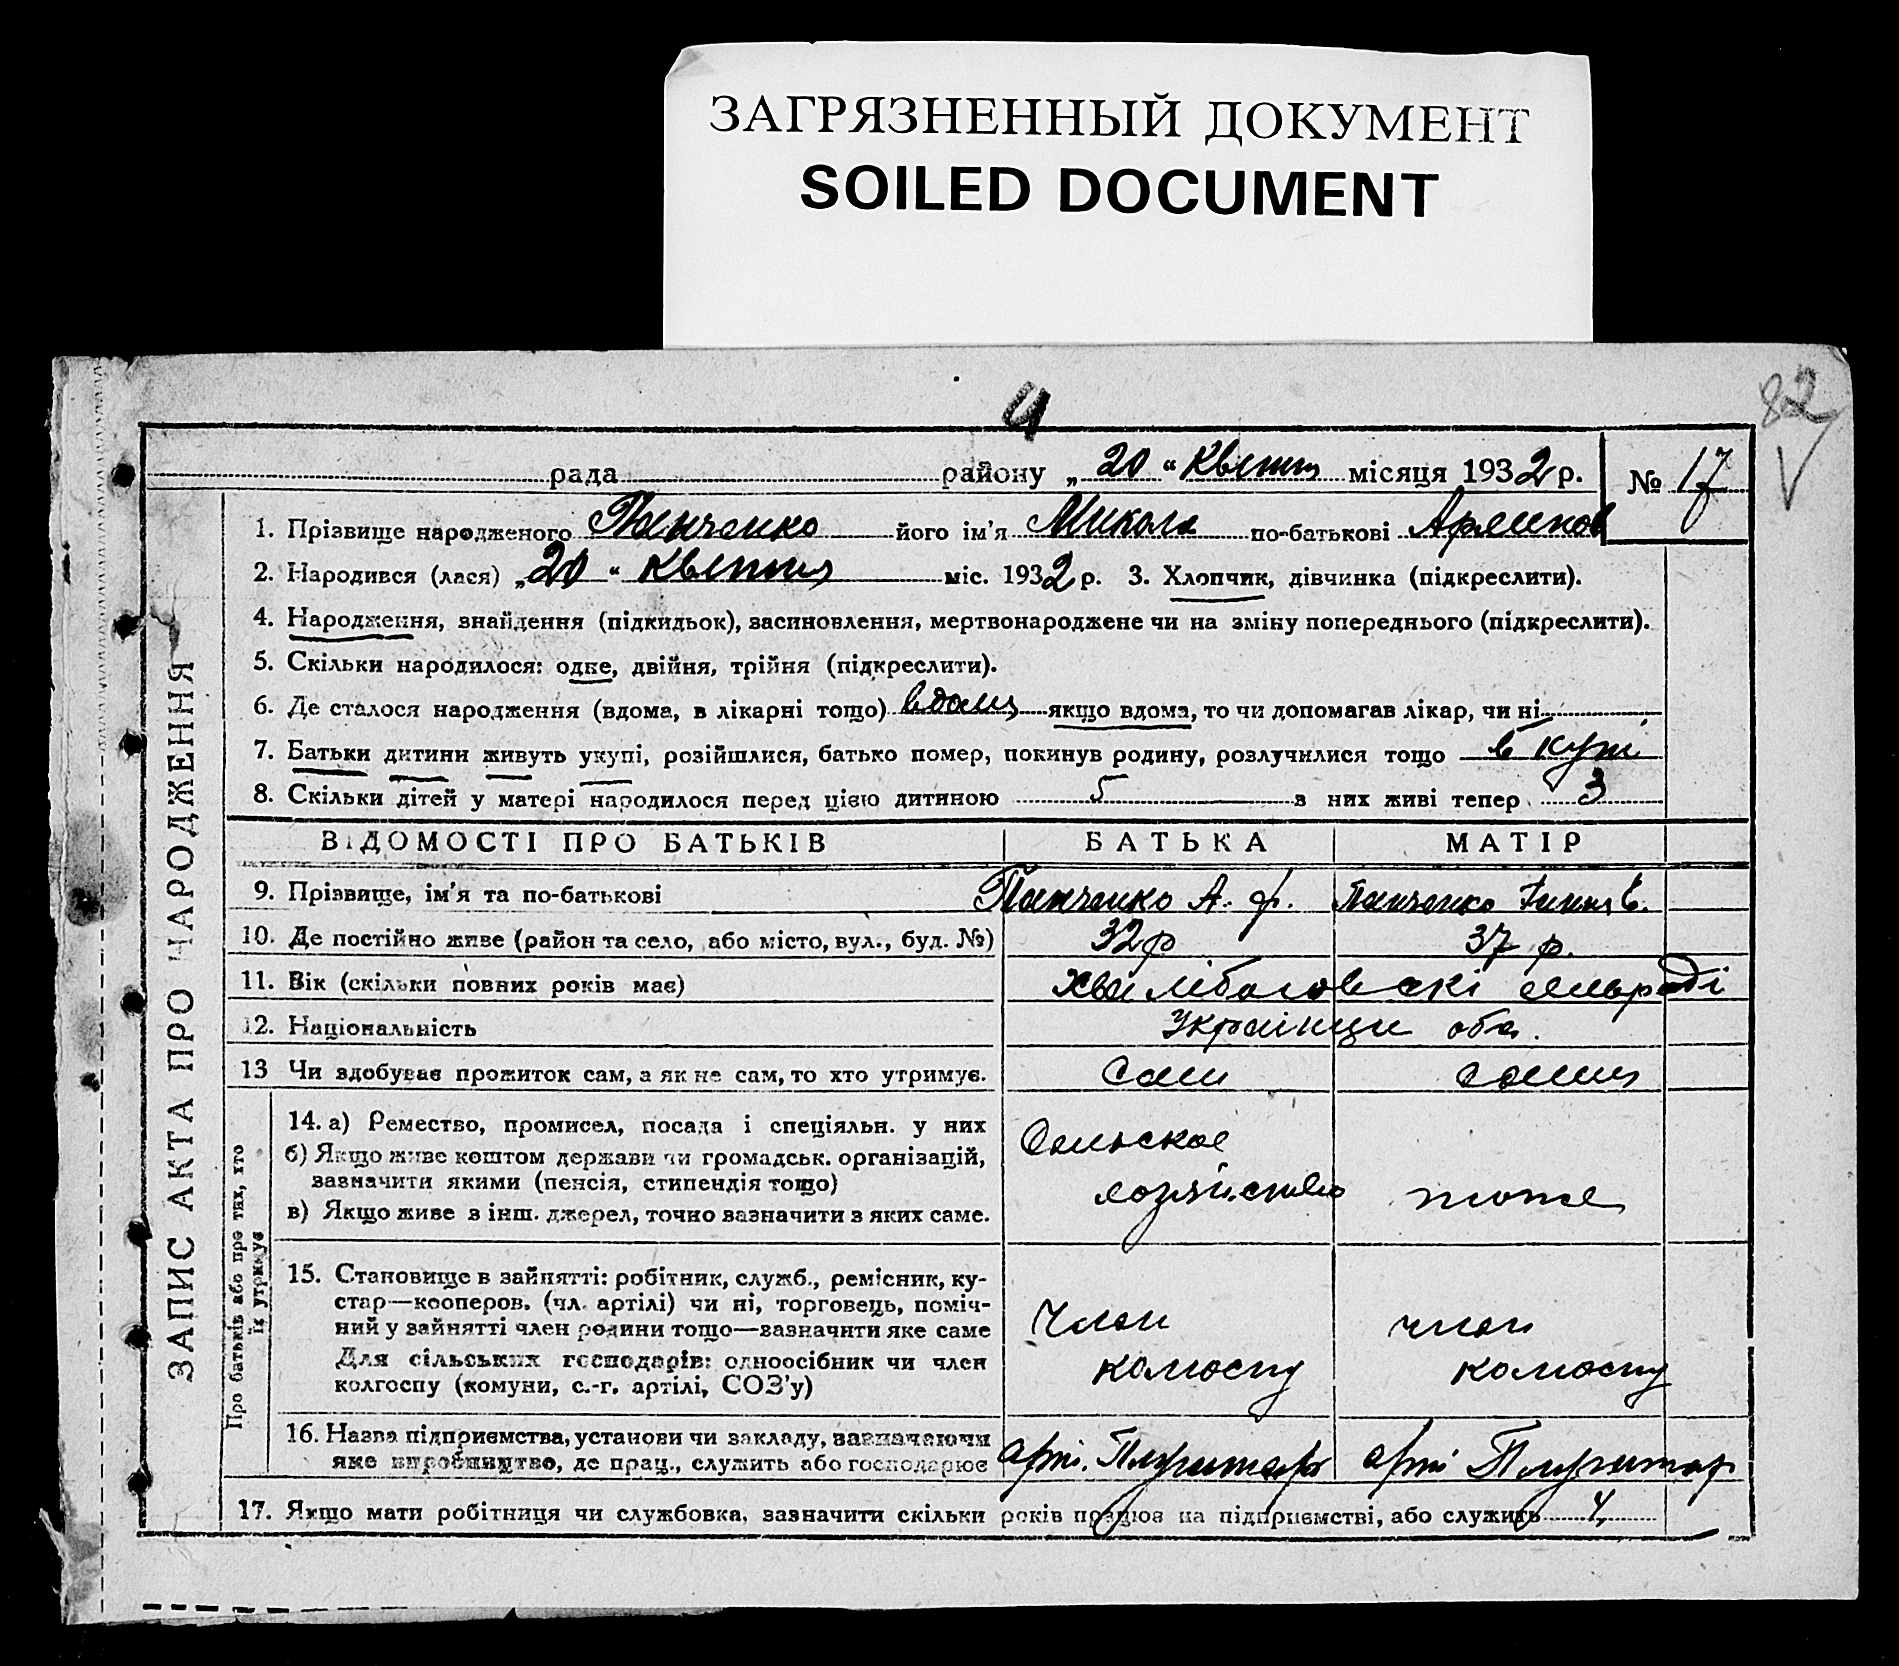 ЗАГРЯЗНЕННЫЙ ДОКУМЕНТ
SOILED DOCUMENT
82
рада района „20“ Квітня місяця 1932 р. № 17
1. Прізвище народженого Панченко його ім'я Микола по-батькові
2. Народився (лася) „20“ Квітня міс. 1932 р. 3. Хлопчик, дівчинка (підкреслити).
4. Народження, знайдення (підкидьок), засиновлення, мертвонароджене чи на зміну попереднього (підкреслити).
5. Скільки народилося: одне, двійня, трійня (підкреслити).
6. Де сталося народження (вдома, в лікарні тощо) вдома якщо вдома, то чи допомагав лікар, чи ні
7. Батьки дитини живуть укупі, розійшлися, батько помер, покинув родину, розлучилися тощо в купі
8. Скільки дітей у матері народилося перед цією дитиною 5 з них живі тепер 3
ВІДОМОСТІ ПРО БАТЬКІВ БАТЬКА МАТІР
9. Прізвище, ім'я та по-батькові Панченко А. Ф. Панченко Є.
10. Де постійно живе (район та село, або місто, вул., буд. №) 32 р 37 р.
11. Вік (скільки повних років має)
12. Національність Українци оба.
13 Чи здобуває прожиток сам, а як не сам, то хто утримує. Сам сама
14. а) Ремество, промисел, посада і спеціяльн. у них
б) Якщо живе коштом держави чи громадськ. організацій,
зазначити якими (пенсія, стипендія тощо)
в) Якщо живе з інш. джерел, точно зазначити з яких саме.
Сельское
хозяйство тоже
15. Становище в зайнятті: робітник, служб., ремісник, ку-
стар—кооперов. (чл. артілі) чи ні, торговець, поміч-
ний у зайнятті член родини тощо—зазначити яке саме
Для сільських господарів: одноосібник чи член
колгоспу (комуни, с.-г. артілі, СОЗ'у)
Член член
колгоспу колгоспу
16. Назва підприємства, установи чи закладу, зазначаючи
яке виробництво, де прац., служить або господарює
арт. Плугатарь арт Плугатар
17. Якщо мати робітниця чи службовка, зазначити скільки років працює на підприємстві, або служить
ЗАПИС АКТА ПРО НАРОДЖЕННЯ
Про батьків або про тих, хто
їх утримує